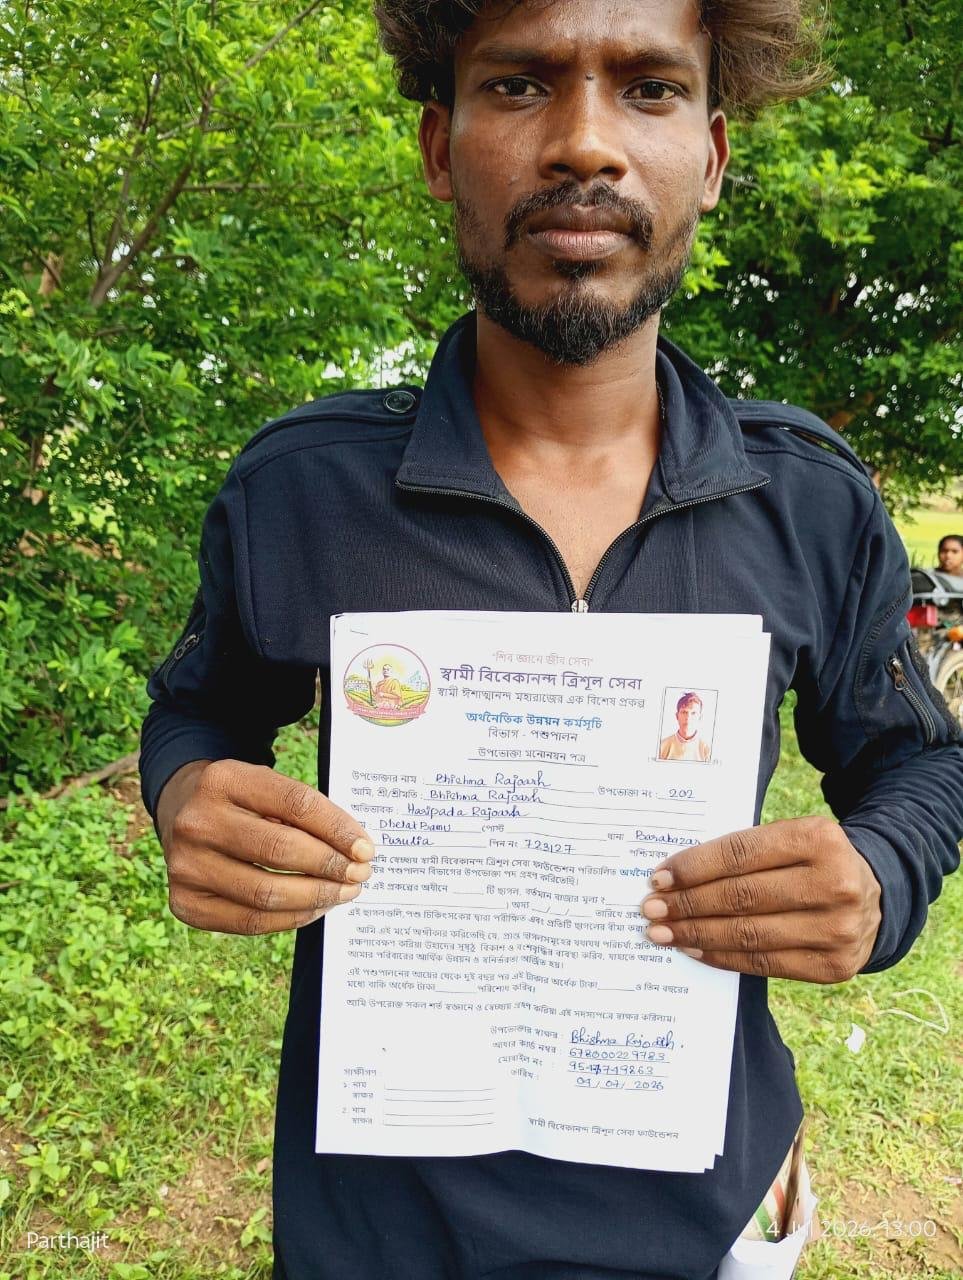 "শিব জ্ঞানে জীব সেবা"
স্বামী বিবেকানন্দ ত্রিশূল সেবা
স্বামী ঈশাত্মানন্দ মহারাজের এক বিশেষ প্রকল্প
অর্থনৈতিক উন্নয়ন কর্মসূচি
বিভাগ - পশুপালন
উপভোক্তা মনোনয়ন পত্র
উপভোক্তার নাম : Bhishma Rajoarh উপভোক্তা নং : 202
আমি, শ্রী/শ্রীমতি : Bhishma Rajoarh
অভিভাবক : Haripada Rajoarh
Dhelat Bamu পোস্ট থানা Barabazar
Purulia পিন নং 723127 পশ্চিমবঙ্গ
আমি স্বেচ্ছায় স্বামী বিবেকানন্দ ত্রিশূল সেবা ফাউন্ডেশন পরিচালিত অর্থনৈতি
পশুপালন বিভাগের উপভোক্তা পদ গ্রহণ করিতেছি।
এই প্রকল্পের অধীনে টি ছাগল, বর্তমান বাজার মূল্য ₹
) অদ্য / / তারিখে গ্রহণ
এই ছাগলগুলি, পশু চিকিৎসকের দ্বারা পরীক্ষিত এবং প্রতিটি ছাগলের বীমা করা
আমি এই মর্মে অঙ্গীকার করিতেছি যে, প্রাপ্ত ছাগলসমূহের যথাযথ পরিচর্যা, প্রতিপালন
রক্ষণাবেক্ষণ করিয়া উহাদের সুষ্ঠু বিকাশ ও বংশবৃদ্ধির ব্যবস্থা করিব, যাহাতে আমার ও
আমার পরিবারের আর্থিক উন্নয়ন ও স্বনির্ভরতা অর্জিত হয়।
এই পশুপালনের আয়ের থেকে দুই বছর পর এই টাকার অর্ধেক টাকা ও তিন বছরের
মধ্যে বাকি অর্ধেক টাকা পরিশোধ করিব।
আমি উপরোক্ত সকল শর্ত স্বজ্ঞানে ও স্বেচ্ছায় গ্রহণ করিয়া এই সদস্যপত্রে স্বাক্ষর করিলাম।
উপভোক্তার স্বাক্ষর : Bhishma Rajoarh.
আধার কার্ড নম্বর : 678000229783
মোবাইল নং : 9547749863
তারিখ : 04/07/2026
সাক্ষীগণ
১. নাম
স্বাক্ষর
২. নাম
স্বাক্ষর
স্বামী বিবেকানন্দ ত্রিশূল সেবা ফাউন্ডেশন
Parthajit
4 Jul 2026, 13:00